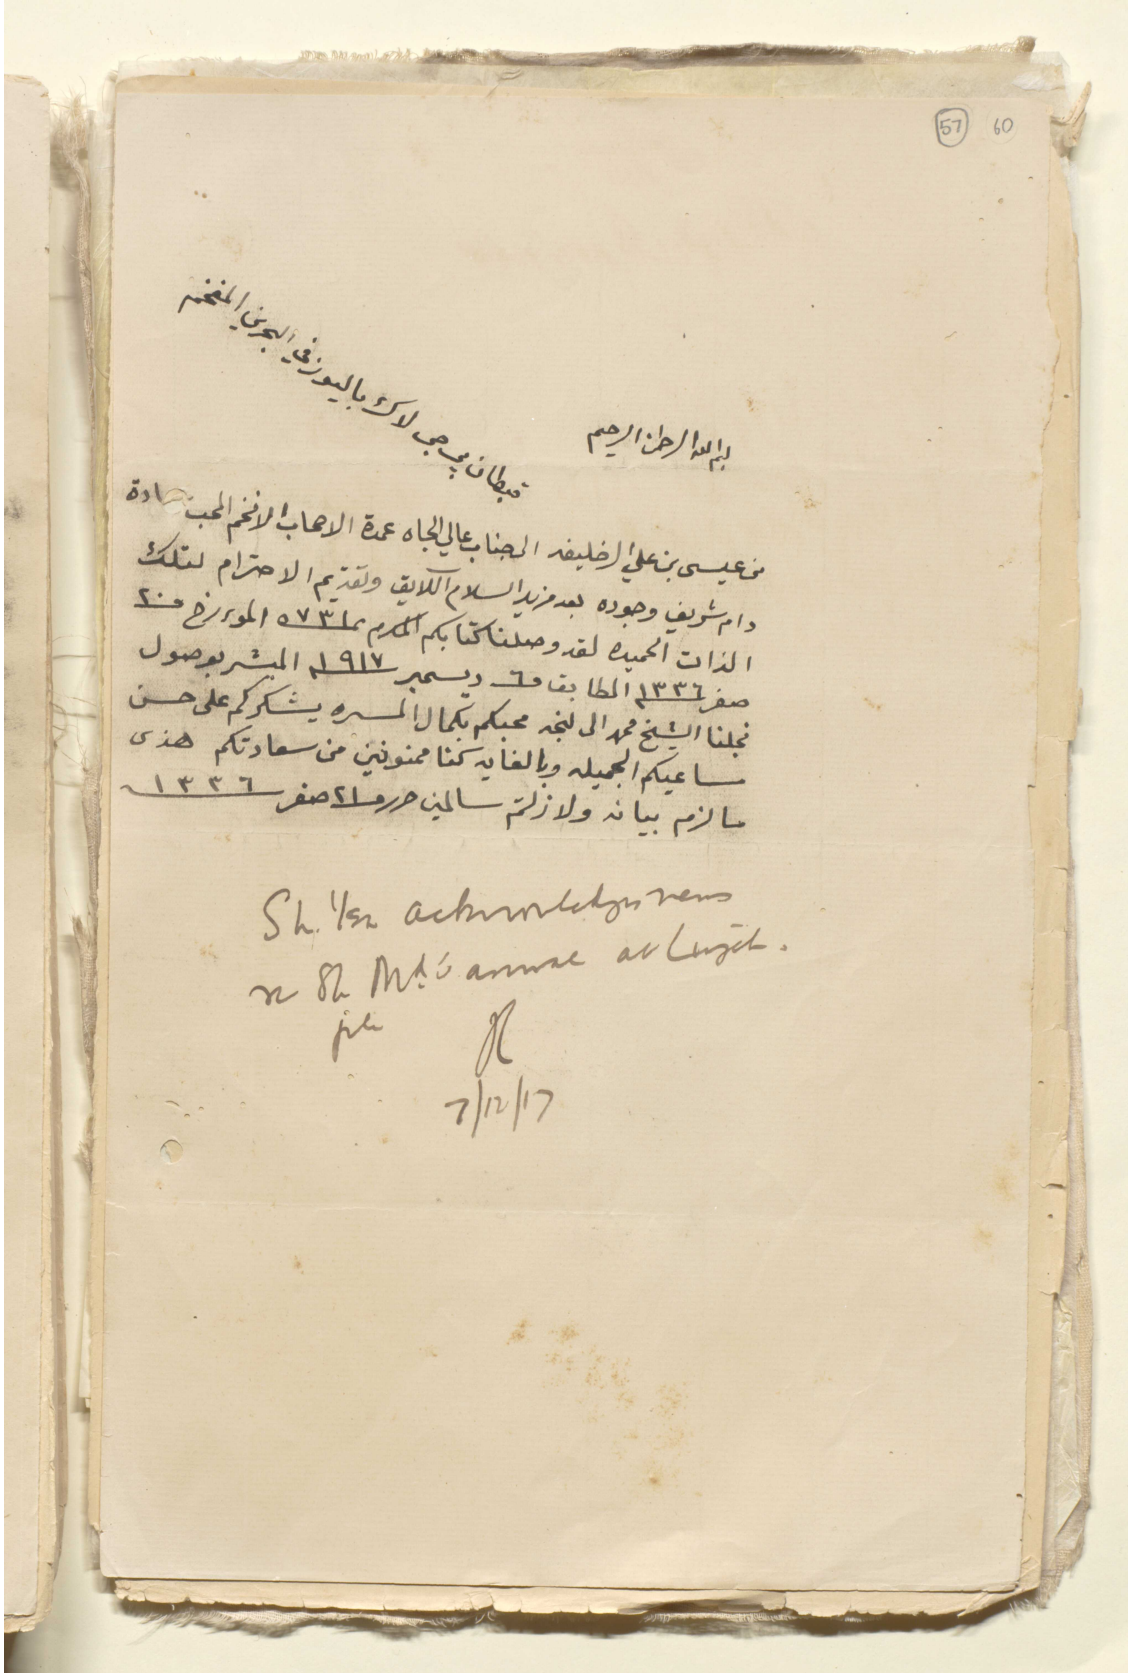 57 60
بسم الله الرحمن الرحيم
من عيسى بن علي ال خليفه الى جناب عالي الجاه عمدة الاصحاب الافخم المحب سعادة
قبطان پي جي لاك باليوز في البحرين المفخم
دام شريف وجوده بعد مزيد السلام اللايق وتقديم الاحترام لتلك
الذات الحميده لقد وصلنا كتابكم المكرم المورخ ٢٠
صفر ١٣٣٦ المطابق ٦ ديسمبر ١٩١٧ المبشر بوصول
نجلنا الشيخ محمد الى لنجه محبكم بكمال المسره يشكركم على حسن
مساعيكم الجميله وبالغايه كنا ممنونين من سعادتكم هذى
ما لزم بيانه ولا زلتم سالمين حرر ٢١ صفر ١٣٣٦
Sh. 'Isa acknowledges news
re Sh Md's arrival at Lingah.
file
7/12/17